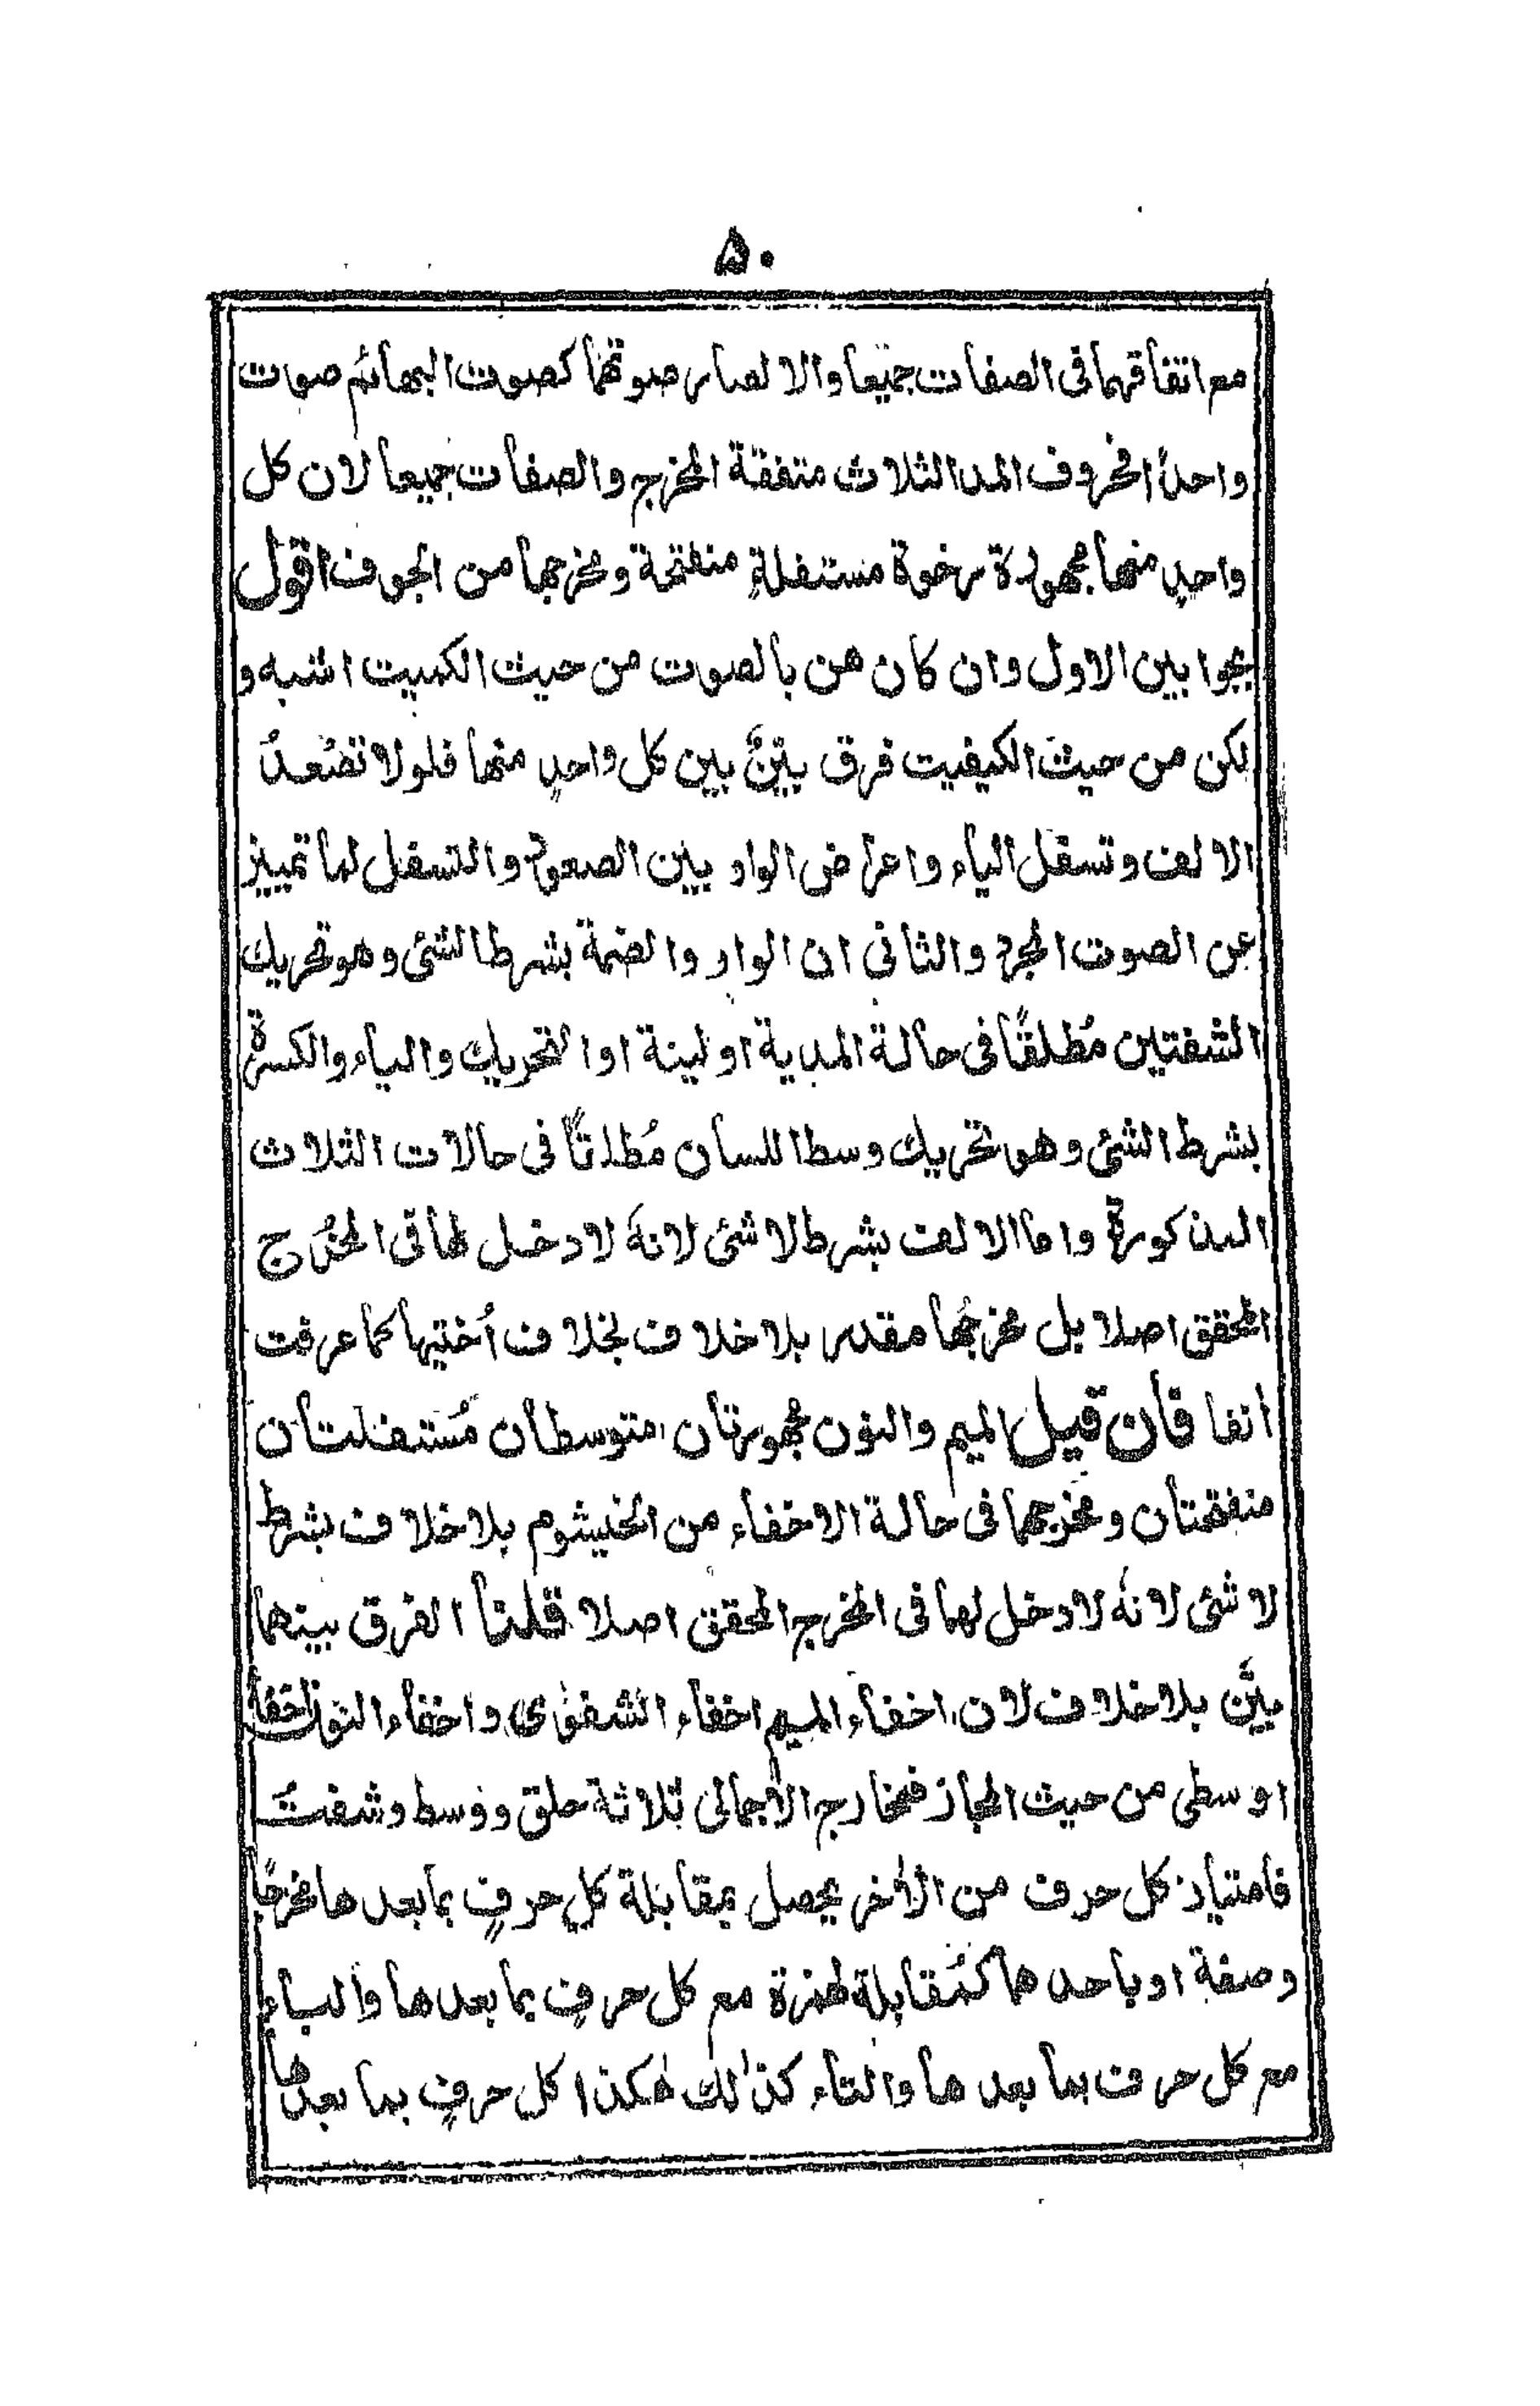 ۵۰
مع اتفاقهما فى الصفات جميعا والا لصار صوتها كصوت البهائم صوت
واحدًا فحروف المد الثلاث متفقة المخرج والصفات جميعا لان كل
واحدٍ منها مجهورة رخوة مستفلةٍ منفتحة ومخرجها من الجوف اقول
بجوابين الاول وان كان هن بالصوت من حيث الكميت اشبه و
لكن من حيث الكيفيت فرق بيّنٌ بين كل واحدٍ منها فلولا تصَعدُ
الالف وتسفل الياء واعراض الواو بين الصعود والتسفل لما تمييز
عن الصوت المجرد والثانى ان الواو والضمة بشرط الشئ وهو تحريك
الشفتين مُطلقًا فى حالة المدية او لينة او التحريك والياء والكسرة
بشرط الشئ وهو تحريك وسط اللسان مُطلقًا فى حالات الثلاث
المذكورة واما الالف بشرط لا شئ لانهٗ لا دخل لها فى المخرج
المحقق اصلا بل مخرجُها مقدر بلا خلاف بخلاف اُختيها كما عرفت
انفا فان قيل الميم والنون مجهورتان متوسطان مُستفلتان
منفتحتان ومخرجهما فى حالة الاخفاء من الخيشوم بلا خلاف بشرط
لا شئ لانهٗ لا دخل لهما فى المخرج المحقق اصلا قلنا الفرق بينهما
بيّن بلا خلاف لان اخفاء الميم اخفاء الشفوى واخفاء النون اخفا
اوسطى من حيث المجاز فمخارج الاجمالى ثلاثة حلق ووسط وشفت
فامتياز كل حرف من الاٰخر يحصل بمقابلة كلِ حرفٍ بما بعدها مخرجًا
وصفة او باحدهما كمُقابلة لهمزة مع كل حرفٍ بما بعدها والباء
مع كل حرف بما بعدها والتاء كذٰلك هٰكذا كل حرفٍ بما بعدها